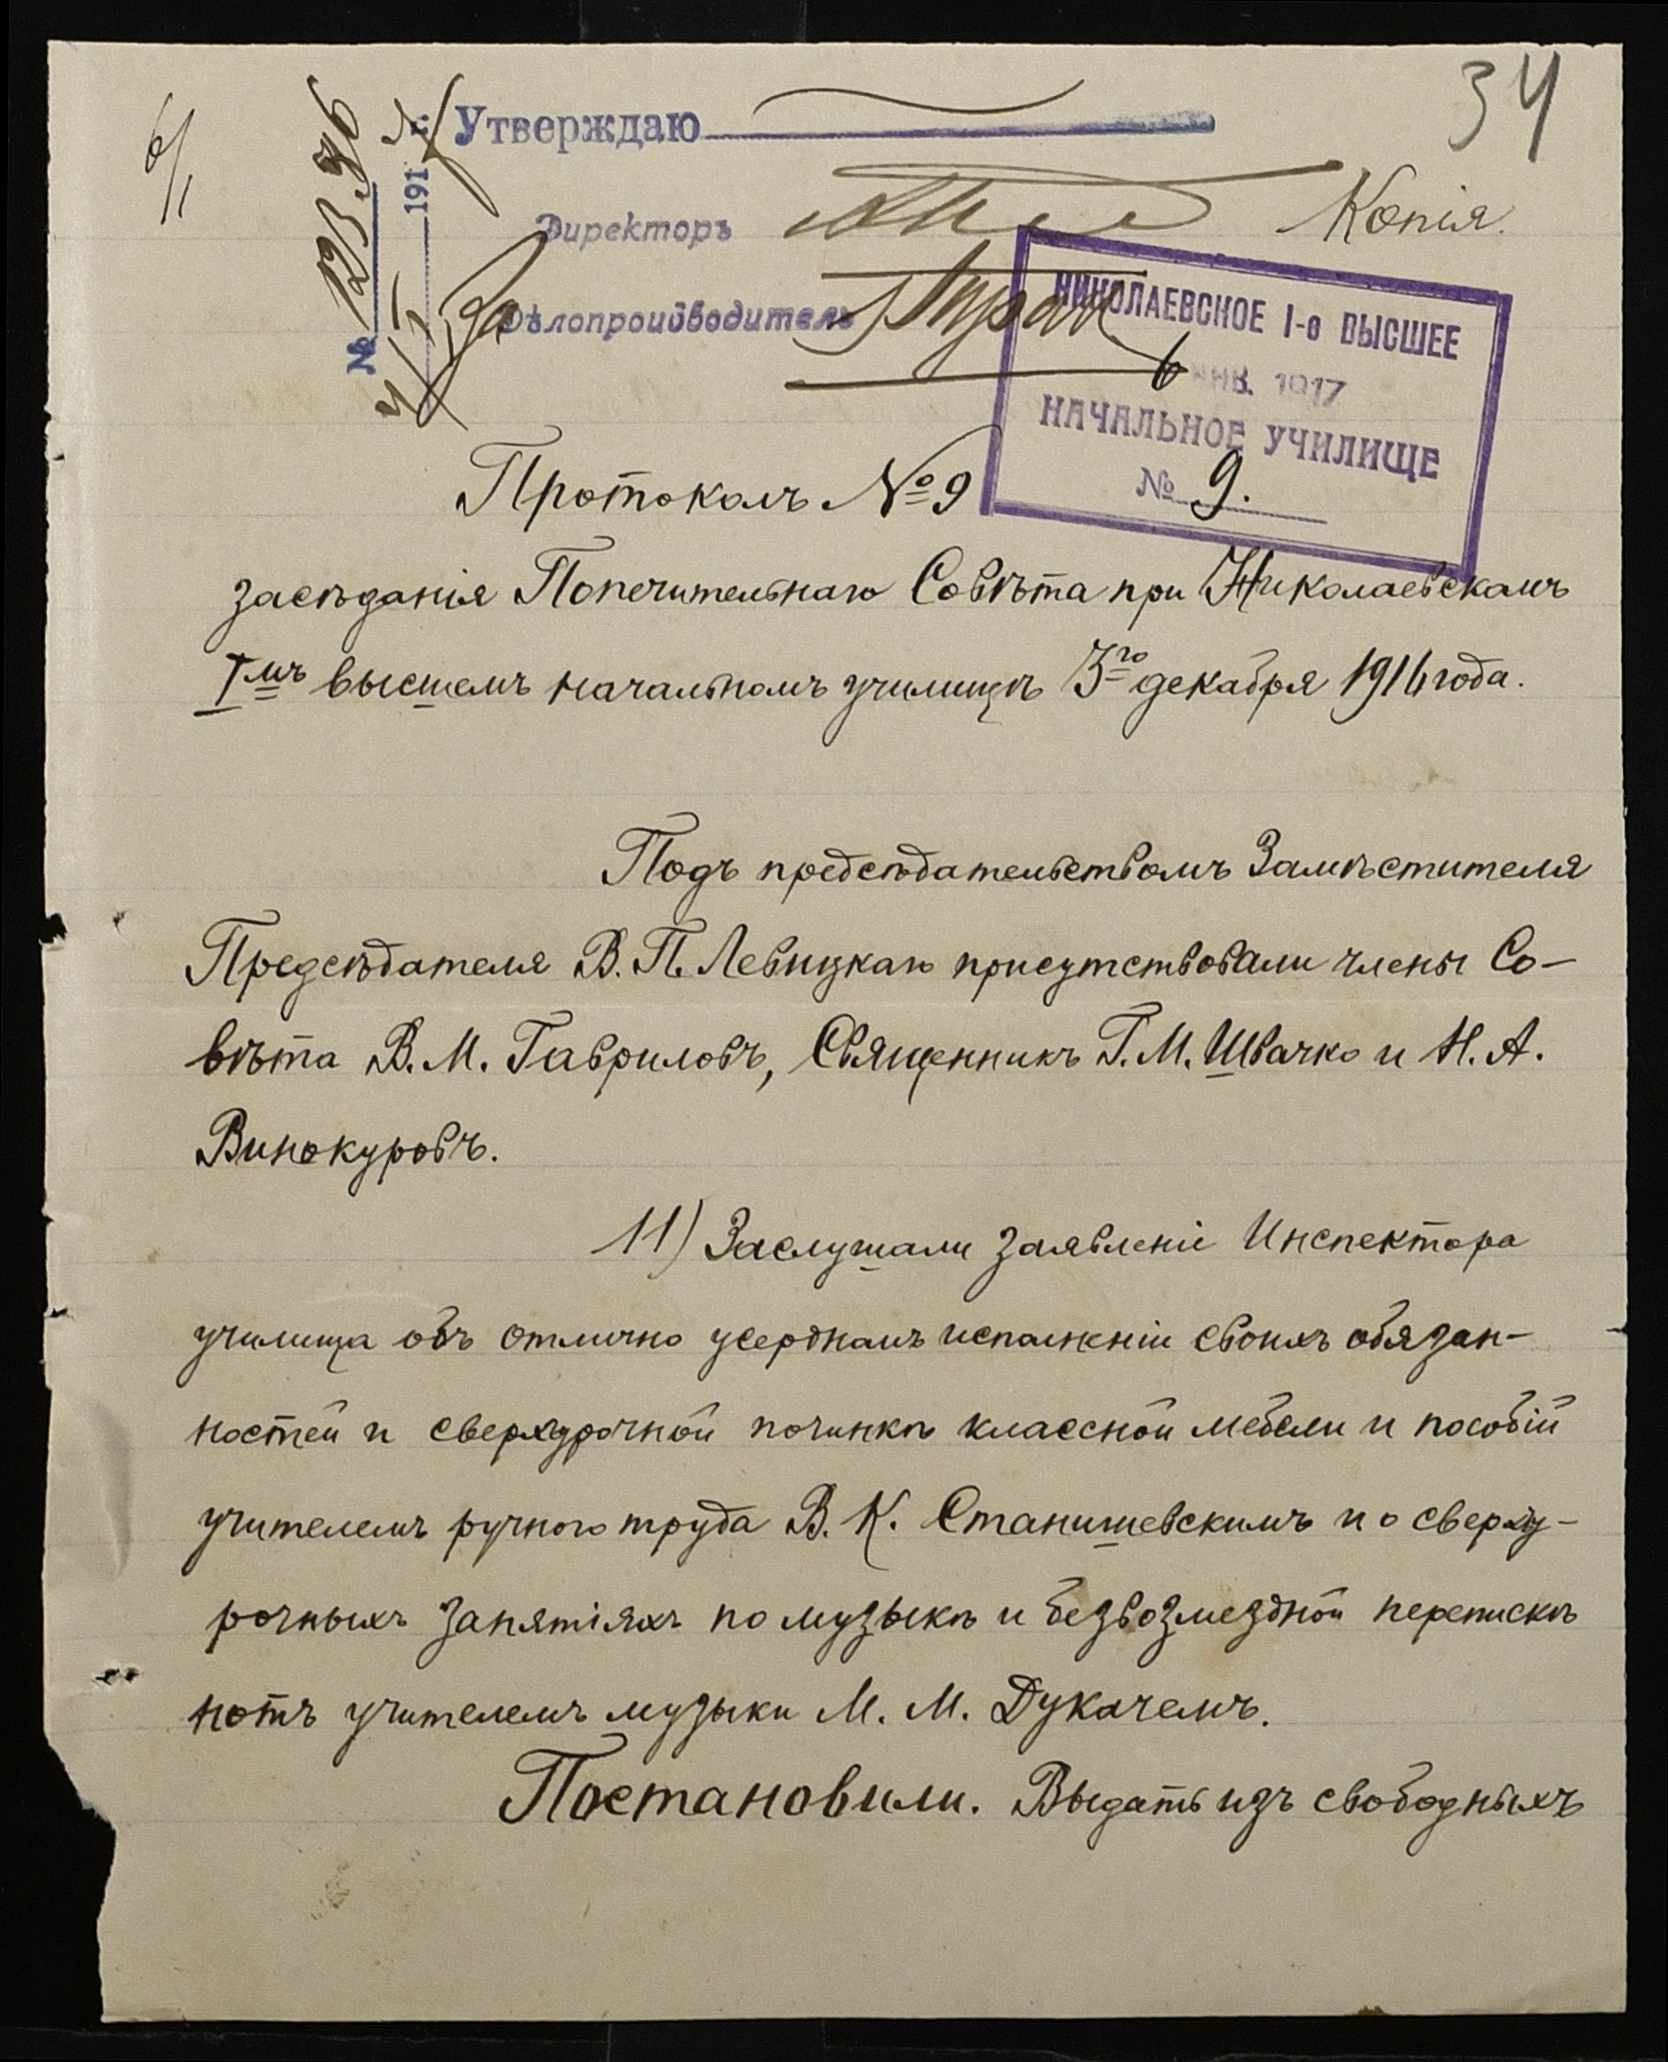 34
6/I
Утверждаю
№
191 г.
Директоръ
Копія.
За Дѣлопроизводитель
НИКОЛАЕВСКОЕ I-е ВЫСШЕЕ
6 ЯНВ. 1917
НАЧАЛЬНОЕ УЧИЛИЩЕ
№ 9.
Протоколъ № 9
засѣданія Попечительнаго Совѣта при Николаевскомъ
I мъ высшемъ начальномъ училищѣ 3 го декабря 1916 года.
Подъ предсѣдательствомъ Замѣстителя
Предсѣдателя В. П. Левицкаго присутствовали члены Со-
вѣта В. М. Гавриловъ, Священникъ Г. М. Швачко и Н. А.
Винокуровъ.
11) Заслушали заявленіе Инспектора
училища объ отлично усердномъ исполненіи своихъ обязан-
ностей и сверхурочной починкѣ классной мебели и пособій
учителемъ ручного труда В. К. Станишевскимъ и о сверху-
рочныхъ занятіяхъ по музыкѣ и безвозмездной перепискѣ
нотъ учителемъ музыки М. М. Дукачемъ.
Постановили. Выдать изъ свободныхъ